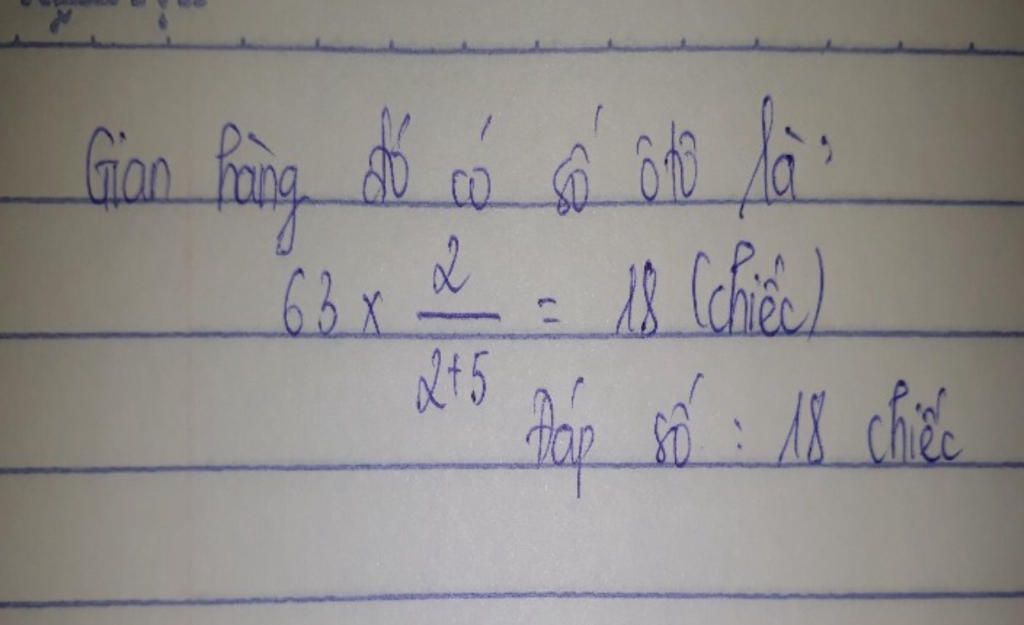 Gian hàng đó có số ôtô là:
63 x 2/2+5 = 18 (chiếc)
Đáp số : 18 chiếc